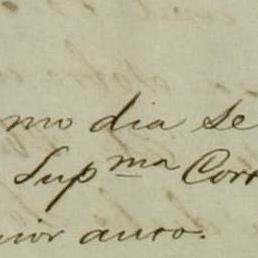 mo dia se
Sup.ma Cort
rior auto.